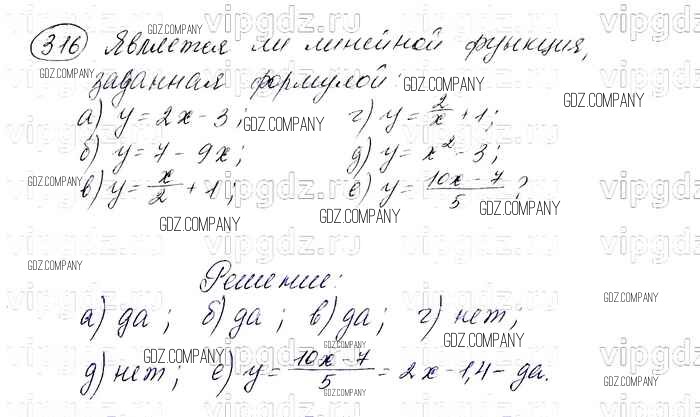 316 Является ли линейной функция,
заданная формулой:
а) y = 2x - 3; г) y = 2/x + 1;
б) y = 7 - 9x; д) y = x² - 3;
в) y = x/2 + 1; е) y = (10x - 7)/5?
Решение:
а) да; б) да; в) да; г) нет;
д) нет; е) y = (10x - 7)/5 = 2x - 1,4 - да.
GDZ.COMPANY
vipgdz.ru